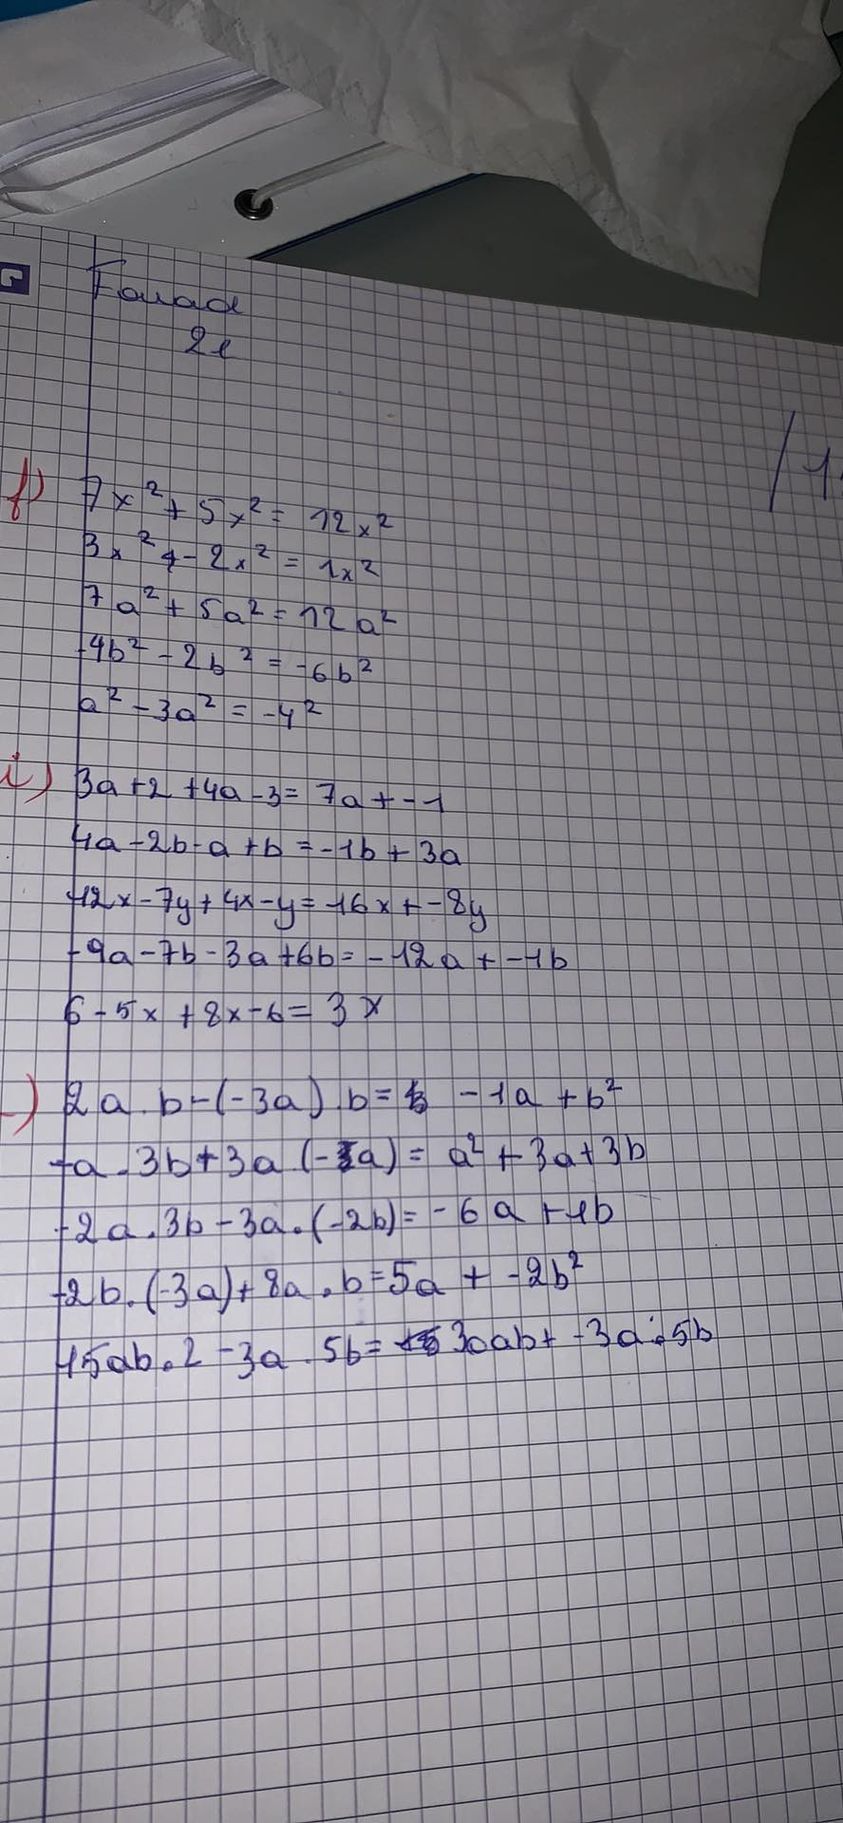 Fouad
2e
/1
f) 7x² + 5x² = 12x²
3x² + -2x² = 1x²
7a² + 5a² = 12a²
-4b² - 2b² = -6b²
a² - 3a² = -4²
i) 3a + 2 + 4a - 3 = 7a + -1
4a - 2b - a + b = -1b + 3a
12x - 7y + 4x - y = 16x + -8y
-9a - 7b - 3a + 6b = -12a + -1b
6 - 5x + 8x - 6 = 3x
2a . b - (-3a) . b = -1a + b²
-a . 3b + 3a (-a) = a² + 3a + 3b
-2a . 3b - 3a . (-2b) = -6a + 1b
-2b . (-3a) + 8a . b = 5a + -2b²
15ab . 2 - 3a . 5b = 30ab + -3a . 5b